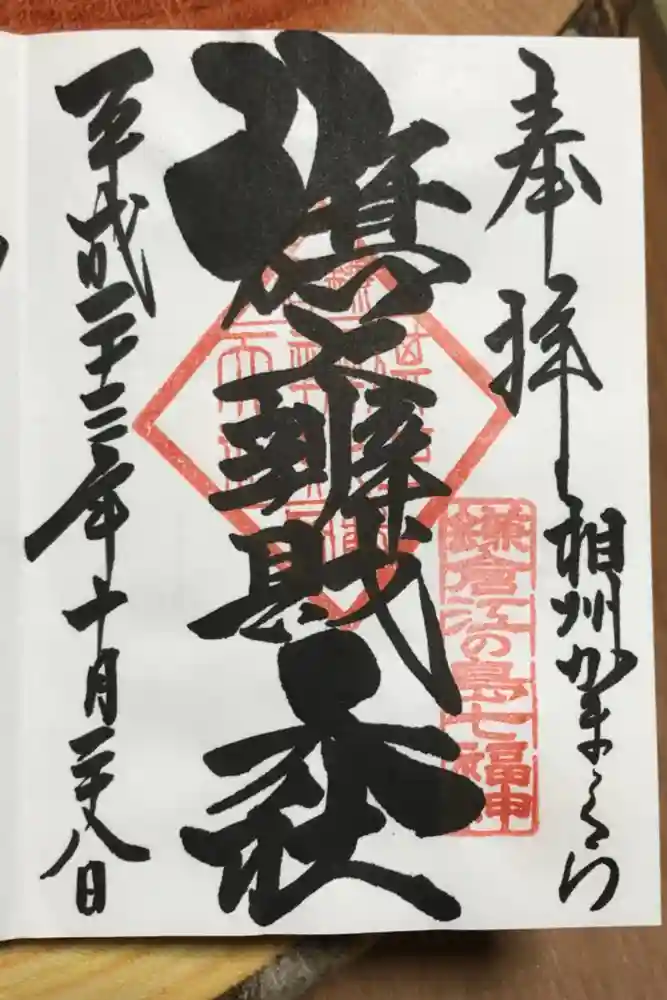 奉拝 相州かまくら
鎌倉江の島七福神
旗上辨財天社
平成二十三年十月二十八日